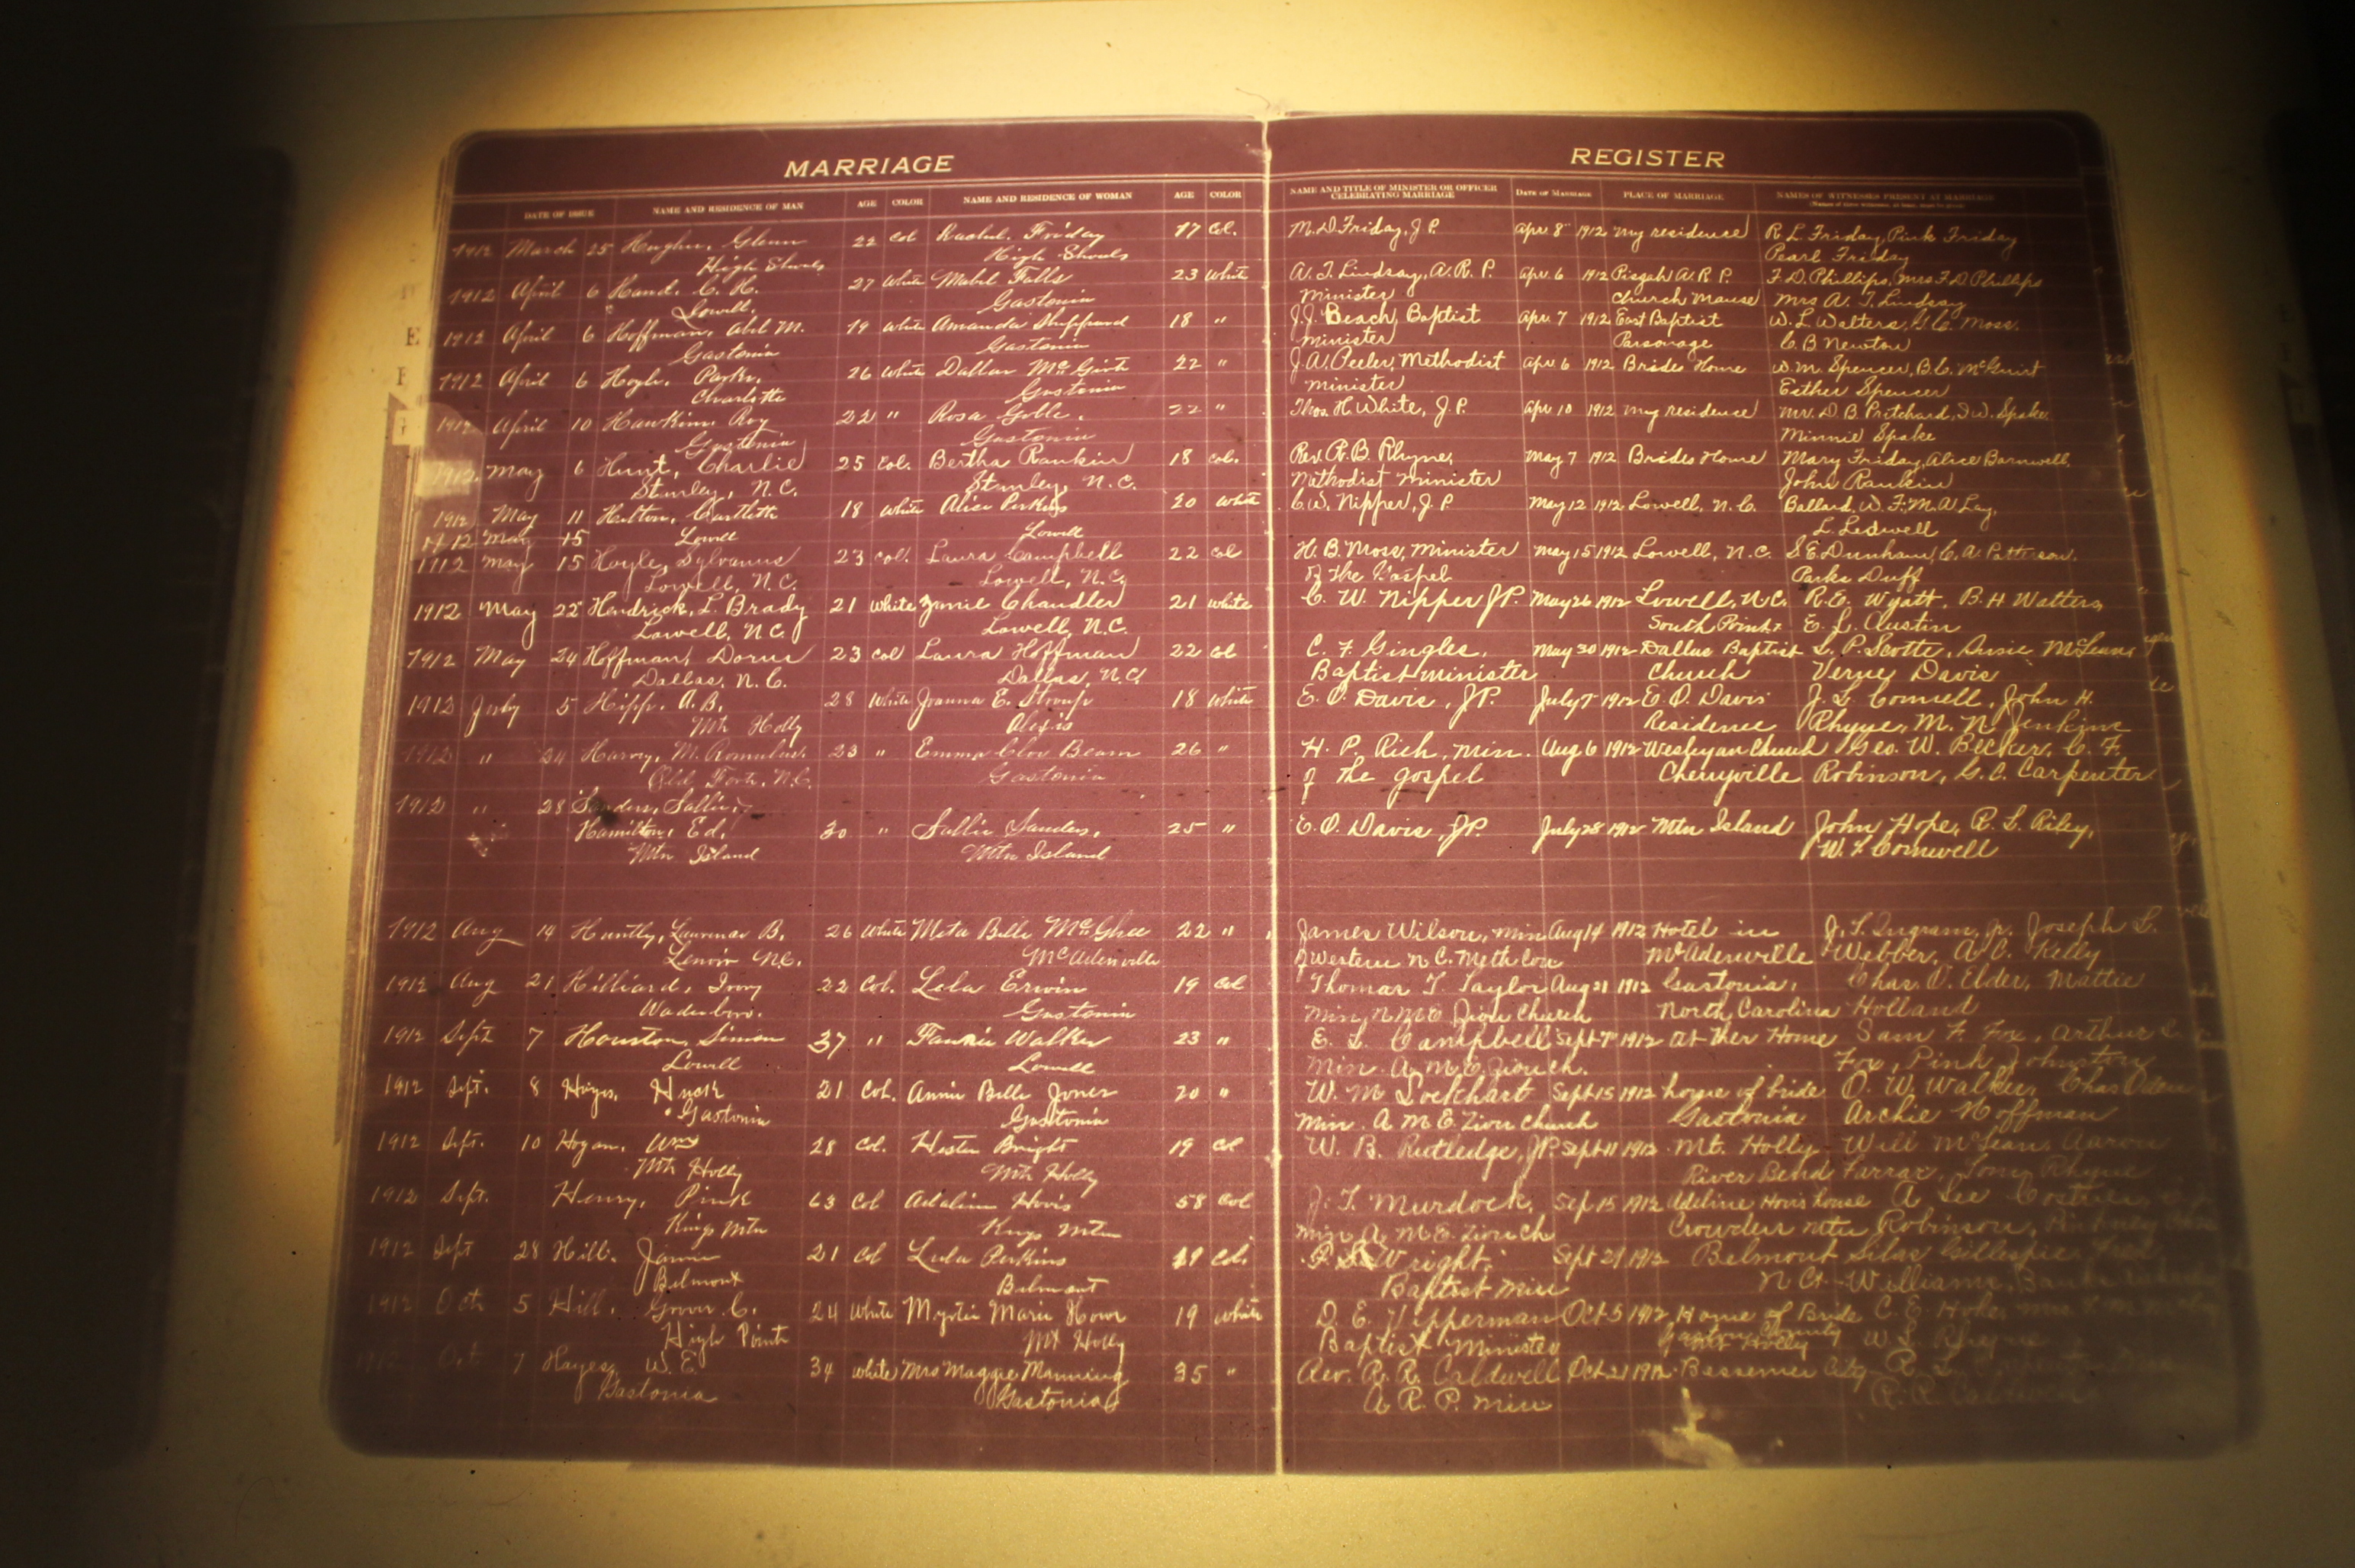 MARRIAGE REGISTER
DATE OF ISSUE NAME AND RESIDENCE OF MAN AGE COLOR NAME AND RESIDENCE OF WOMAN AGE COLOR NAME AND TITLE OF MINISTER OR OFFICER CELEBRATING MARRIAGE DATE OF MARRIAGE PLACE OF MARRIAGE NAMES OF WITNESSES PRESENT AT MARRIAGE
1912 March 25 Hughes, Glenn 22 Col Rachel Friday 17 Col. M. D. Friday, J. P. Apr. 8 1912 my residence R. L. Friday, Pink Friday
High Shoals High Shoals Pearl Friday
1912 April 6 Hand, C. H. 27 White Mabel Falls 23 White A. T. Lindsay, A. R. P. Apr. 6 1912 Pisgah A. R. P. F. D. Phillips, Mrs F. D. Phillips
Lowell. Gastonia Minister Church Manse Mrs A. T. Lindsay
1912 April 6 Hoffman, Abl M. 19 White Amanda Sheppard 18 " J. J. Beach, Baptist Apr. 7 1912 East Baptist W. L. Walters, G. C. Moss.
Gastonia Gastonia Minister Parsonage C. B. Newton
1912 April 6 Hoyle, Parks. 26 White Dallas McGirt 22 " J. A. Peeler, Methodist Apr. 6 1912 Brides Home W. M. Spencer, B. C. McGuirt
Charlotte Gastonia minister Esther Spencer
1912 April 10 Hawkins, Roy 22 " Rosa Goble. 22 " Thos. H. White, J. P. Apr 10 1912 my residence Mr. D. B. Pritchard, J. W. Spake
Gastonia Gastonia Minnie Spake
1912 May 6 Hunt, Charlie 25 Col. Bertha Rankin 18 Col. Rev. R. B. Rhyne, May 7 1912 Brides Home Mary Friday, Alice Barnwell,
Stanley, N. C. Stanley, N. C. Methodist Minister John Rankin
1912 May 11 Hutton, 18 White Alice Perkins 20 White C. W. Nipper, J. P. May 12 1912 Lowell, N. C. Ballard, W. F. M. A. Lay,
1912 May 15 Lowell Lowell L. Ledwell
1912 May 15 Hoyle, Sylvanus 23 Col. Laura Campbell 22 Col H. B. Moss, Minister May 15 1912 Lowell, N. C. S. E. Dunham, C. A. Patterson.
Lowell, N. C. Lowell, N. C. of the Gospel Parks Duff
1912 May 22 Hendrick, L. Brady 21 White Janie Chandler 21 White C. W. Nipper J. P. May 26 1912 Lowell, N. C. R. E. Wyatt, B. H Watters,
Lowell, N. C. Lowell, N. C. South Point. E. L. Austin
1912 May 24 Hoffman, Dorus 23 Col Laura Hoffman 22 Col C. F. Gingles, May 30 1912 Dallas Baptist L. P. Scotts, Susie McLean,
Dallas, N. C. Dallas, N. C. Baptist minister Church Verney Davis
1912 July 5 Hipp. A. B. 28 White Joanna E. Stroup 18 White E. O. Davis, JP. July 7 1912 E. O. Davis J. L. Connell, John H.
Mt Holly Alexis Residence Rhyne, M. N. Jenkins
1912 " 24 Harvey, M. Romulus. 23 " Emma Clov Beam 26 " H. P. Rich, Min. Aug 6 1912 Wesleyan Church Geo. W. Becker, C. F.
Old Fort, N. C. Gastonia of the gospel Cherryville Robinson, G. C. Carpenter
1912 " 28 Sanders, Sallie,
Hamilton, Ed. 30 " Sallie Sanders. 25 " E. O. Davis, JP. July 28 1912 Mtn Island John Hope, R. L. Riley,
Mtn Island Mtn Island W. L. Cornwell
1912 Aug 14 Huntly, Laurence B. 26 White Meta Belle McGhee 22 " James Wilson, Min Aug 14 1912 Hotel in J. T. Ingram, Jr. Joseph L.
Lenoir N. C. McAdenville of Western N C. Meth Con McAdenville Webber, A. C. Kelly
1912 Aug 21 Hilliard, Ivory 22 Col. Lela Erwin 19 Col Thomas T. Taylor Aug 21 1912 Gastonia, Chas. O. Elder, Mattie
Wadesboro. Gastonia Min. Zion Church North Carolina Holland
1912 Sept 7 Houston, Simon 37 " Fannie Walker 23 " E. L. Campbell Sept 7 1912 at Her Home Sam F. Fox, Arthur
Lowell Lowell Min. A. M. E. Zion Ch. Fox, Pink Johnston
1912 Sept. 8 Hayes, 21 Col. Annie Belle Jones 20 " W. M Lockhart Sept 15 1912 home of bride O. W. Walker, Chas
Gastonia Gastonia Min. A M E Zion Church Gastonia Archie Hoffman
1912 Sept. 10 Hogan, Wm 28 Col. Hester Bright 19 Col W. B. Rutledge, JP. Sept 11 1912 Mt. Holly Will McLean, Aaron
Mt Holly Mt Holly River Bend Farrar, Tony Rhyne
1912 Sept. Henry, Pink 63 Col Adaline Hovis 58 Col J. T. Murdock, Sep 15 1912 Adeline Hovis house A Lee
Kings Mtn Kings Mtn Min A M E. Zion Ch Crowders mtn Robinson,
1912 Sept 28 Hill. James 21 Col Lula Perkins 19 Col. Wright. Sept 29, 1912 Belmont Silas Gillespie
Belmont Belmont Baptist Min N C Williams,
1912 Oct 5 Hill, Grover C. 24 White Myrtie Marie Hovis 19 White D. E. Vipperman Oct 5 1912 Home of Bride C. E. Hoke,
High Point Mt Holly Baptist Minister Gaston County W. L. Rhyne
Oct 7 Hayes, W. E. 34 White Mrs Maggie Manning 35 " Rev. R. R. Caldwell Oct. 21 1912 Bessemer City
Gastonia Gastonia A R. P. Min R. R. Caldwell